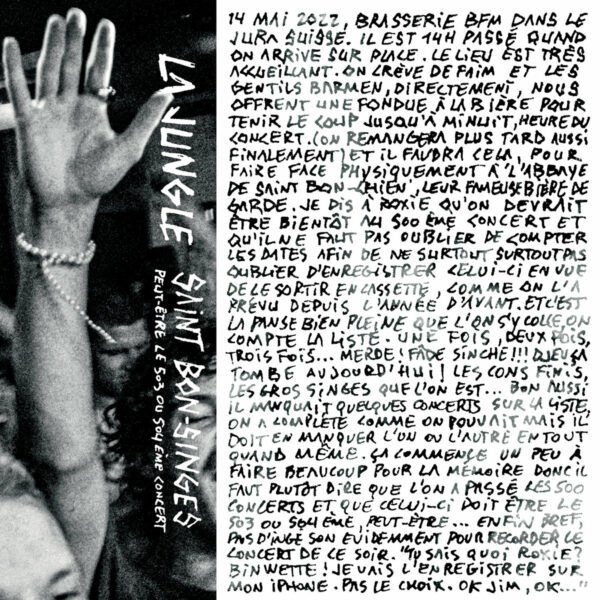 LA JUNGLE
SAINT BON-SINGES
PEUT-ÊTRE LE 503 OU 504ÈME CONCERT
14 MAI 2022, BRASSERIE BFM DANS LE
JURA SUISSE. IL EST 14H PASSÉ QUAND
ON ARRIVE SUR PLACE. LE LIEU EST TRÈS
ACCUEILLANT. ON CRÈVE DE FAIM ET LES
GENTILS BARMEN, DIRECTEMENT, NOUS
OFFRENT UNE FONDUE À LA BIÈRE POUR
TENIR LE COUP JUSQU'À MINUIT, HEURE DU
CONCERT. (ON REMANGERA PLUS TARD AUSSI
FINALEMENT) ET IL FAUDRA CELA, POUR
FAIRE FACE PHYSIQUEMENT À 'L'ABBAYE
DE SAINT BON-CHIEN', LEUR FAMEUSE BIÈRE DE
GARDE. JE DIS À ROXIE QU'ON DEVRAIT
ÊTRE BIENTÔT AU 500 ÈME CONCERT ET
QU'IL NE FAUT PAS OUBLIER DE COMPTER
LES DATES AFIN DE NE SURTOUT SURTOUT PAS
OUBLIER D'ENREGISTRER CELUI-CI EN VUE
DE LE SORTIR EN CASSETTE, COMME ON L'A
PRÉVU DEPUIS L'ANNÉE D'AVANT. ET C'EST
LA PANSE BIEN PLEINE QUE L'ON S'Y COLLE, ON
COMPTE LA LISTE. UNE FOIS, DEUX FOIS,
TROIS FOIS... MERDE! FADE SINCHE!!! DJEU ÇA
TOMBE AUJOURD'HUI! LES CONS FINIS,
LES GROS SINGES QUE L'ON EST... BON AUSSI
IL MANQUAIT QUELQUES CONCERTS SUR LA LISTE,
ON A COMPLÉTÉ COMME ON POUVAIT MAIS IL
DOIT EN MANQUER L'UN OU L'AUTRE EN TOUT
QUAND MÊME. ÇA COMMENCE UN PEU À
FAIRE BEAUCOUP POUR LA MÉMOIRE DONC IL
FAUT PLUTÔT DIRE QUE L'ON A PASSÉ LES 500
CONCERTS ET QUE CELUI-CI DOIT ÊTRE LE
503 OU 504 ÈME, PEUT-ÊTRE... ENFIN BREF,
PAS D'INGÉ SON EVIDEMMENT POUR RECORDER LE
CONCERT DE CE SOIR. "TU SAIS QUOI ROXIE?
BINWETTE! JE VAIS L'ENREGISTRER SUR
MON IPHONE. PAS LE CHOIX. OK JIM, OK..."